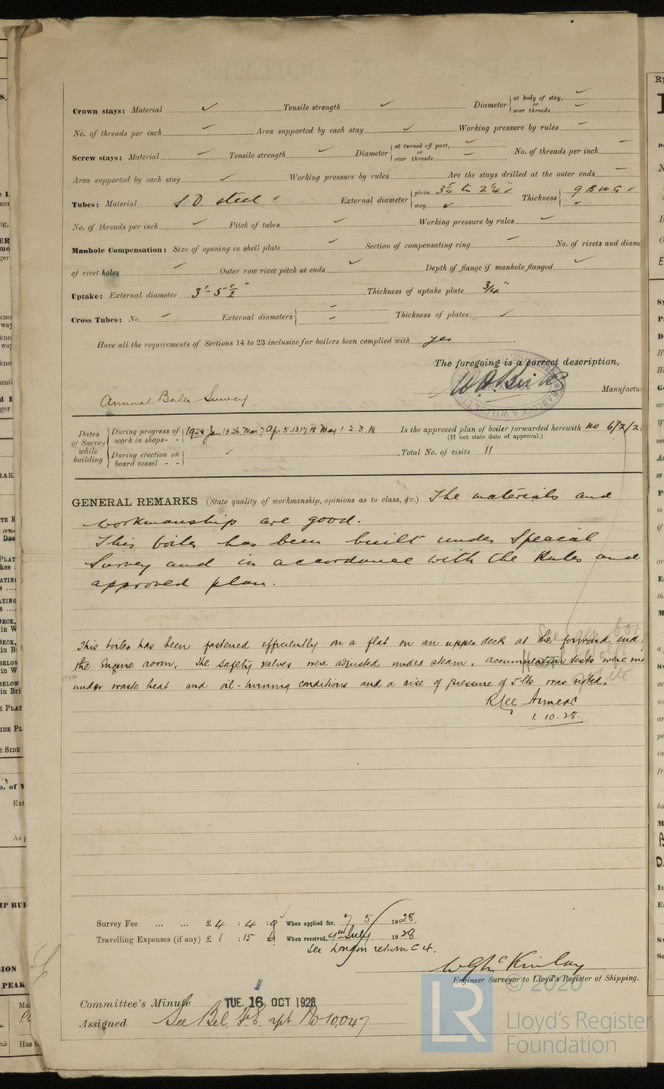 Crown stays: Material ✓ Tensile strength ✓ Diameter { at body of stay, ✓ or over threads ✓
No. of threads per inch ✓ Area supported by each stay ✓ Working pressure by rules ✓
Screw stays: Material ✓ Tensile strength ✓ Diameter { at turned off part, ✓ or over threads ✓ No. of threads per inch ✓
Area supported by each stay ✓ Working pressure by rules Are the stays drilled at the outer ends
Tubes: Material S.D. steel External diameter { plain 3¼" to 2¼" stay ✓ Thickness { 9 B.W.G
No. of threads per inch ✓ Pitch of tubes ✓ Working pressure by rules ✓
Manhole Compensation: Size of opening in shell plate ✓ Section of compensating ring ✓ No. of rivets and diam
of rivet holes ✓ Outer row rivet pitch at ends ✓ Depth of flange if manhole flanged ✓
Uptake: External diameter 3'-5½" Thickness of uptake plate 3/4"
Cross Tubes: No. External diameters { Thickness of plates
Have all the requirements of Sections 14 to 23 inclusive for boilers been complied with yes
The foregoing is a correct description,
Manufactu
Annual Boiler Survey
Dates of Survey while building { During progress of work in shops - - 1928 Jan 13 26 Mar 7 Ap 5 13 17 18 May 1. 2. 3. 18
During erection on board vessel - -
Is the approved plan of boiler forwarded herewith no 6/2/2
(If not state date of approval.)
Total No. of visits 11
GENERAL REMARKS (State quality of workmanship, opinions as to class, &c.) The materials and
workmanship are good.
This boiler has been built under Special
Survey and in accordance with the Rules and
approved plan.
This boiler has been fastened efficiently on a flat on an upper deck at the forward end
the Engine room. The safety valves were adjusted under steam. accumulation tests were m
under waste heat and oil-burning conditions and a rise of pressure of 5 lbs was noted.
1.10.28.
Survey Fee ... ... £ 4 : 4 : 0 When applied for, 7/5/1928.
Travelling Expenses (if any) £ 1 : 15 When received, 4th July 1928
See London return C 4.
W G McKinlay
Engineer Surveyor to Lloyd's Register of Shipping.
Committee's Minute TUE. 16 OCT 1928
Assigned See Bel. F.E. rpt No 10,047
© 2020
LR
Lloyd's Register
Foundation